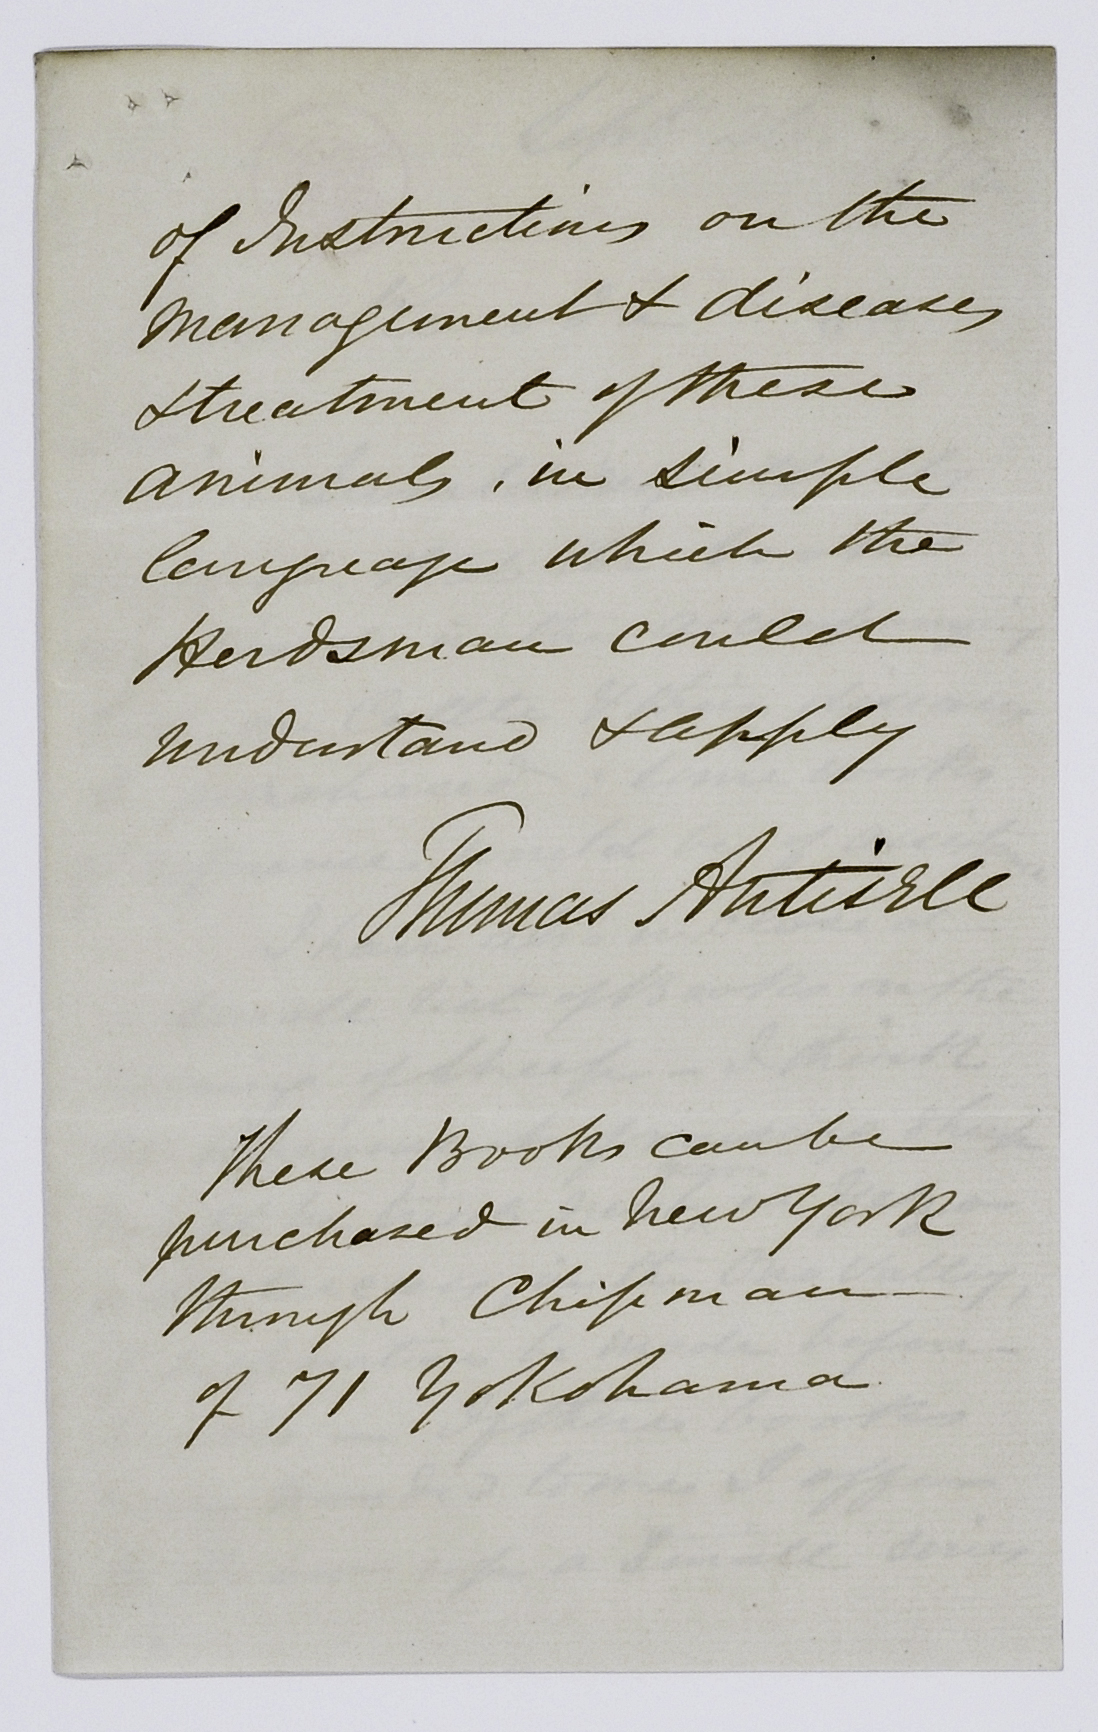 of Instructions on the
management & diseases
& treatment of these
animals, in simple
language which the
Herdsman could
understand & apply
Thomas Antisell
These Books can be
purchased in New York
through Chipman
of 71 Yokohama